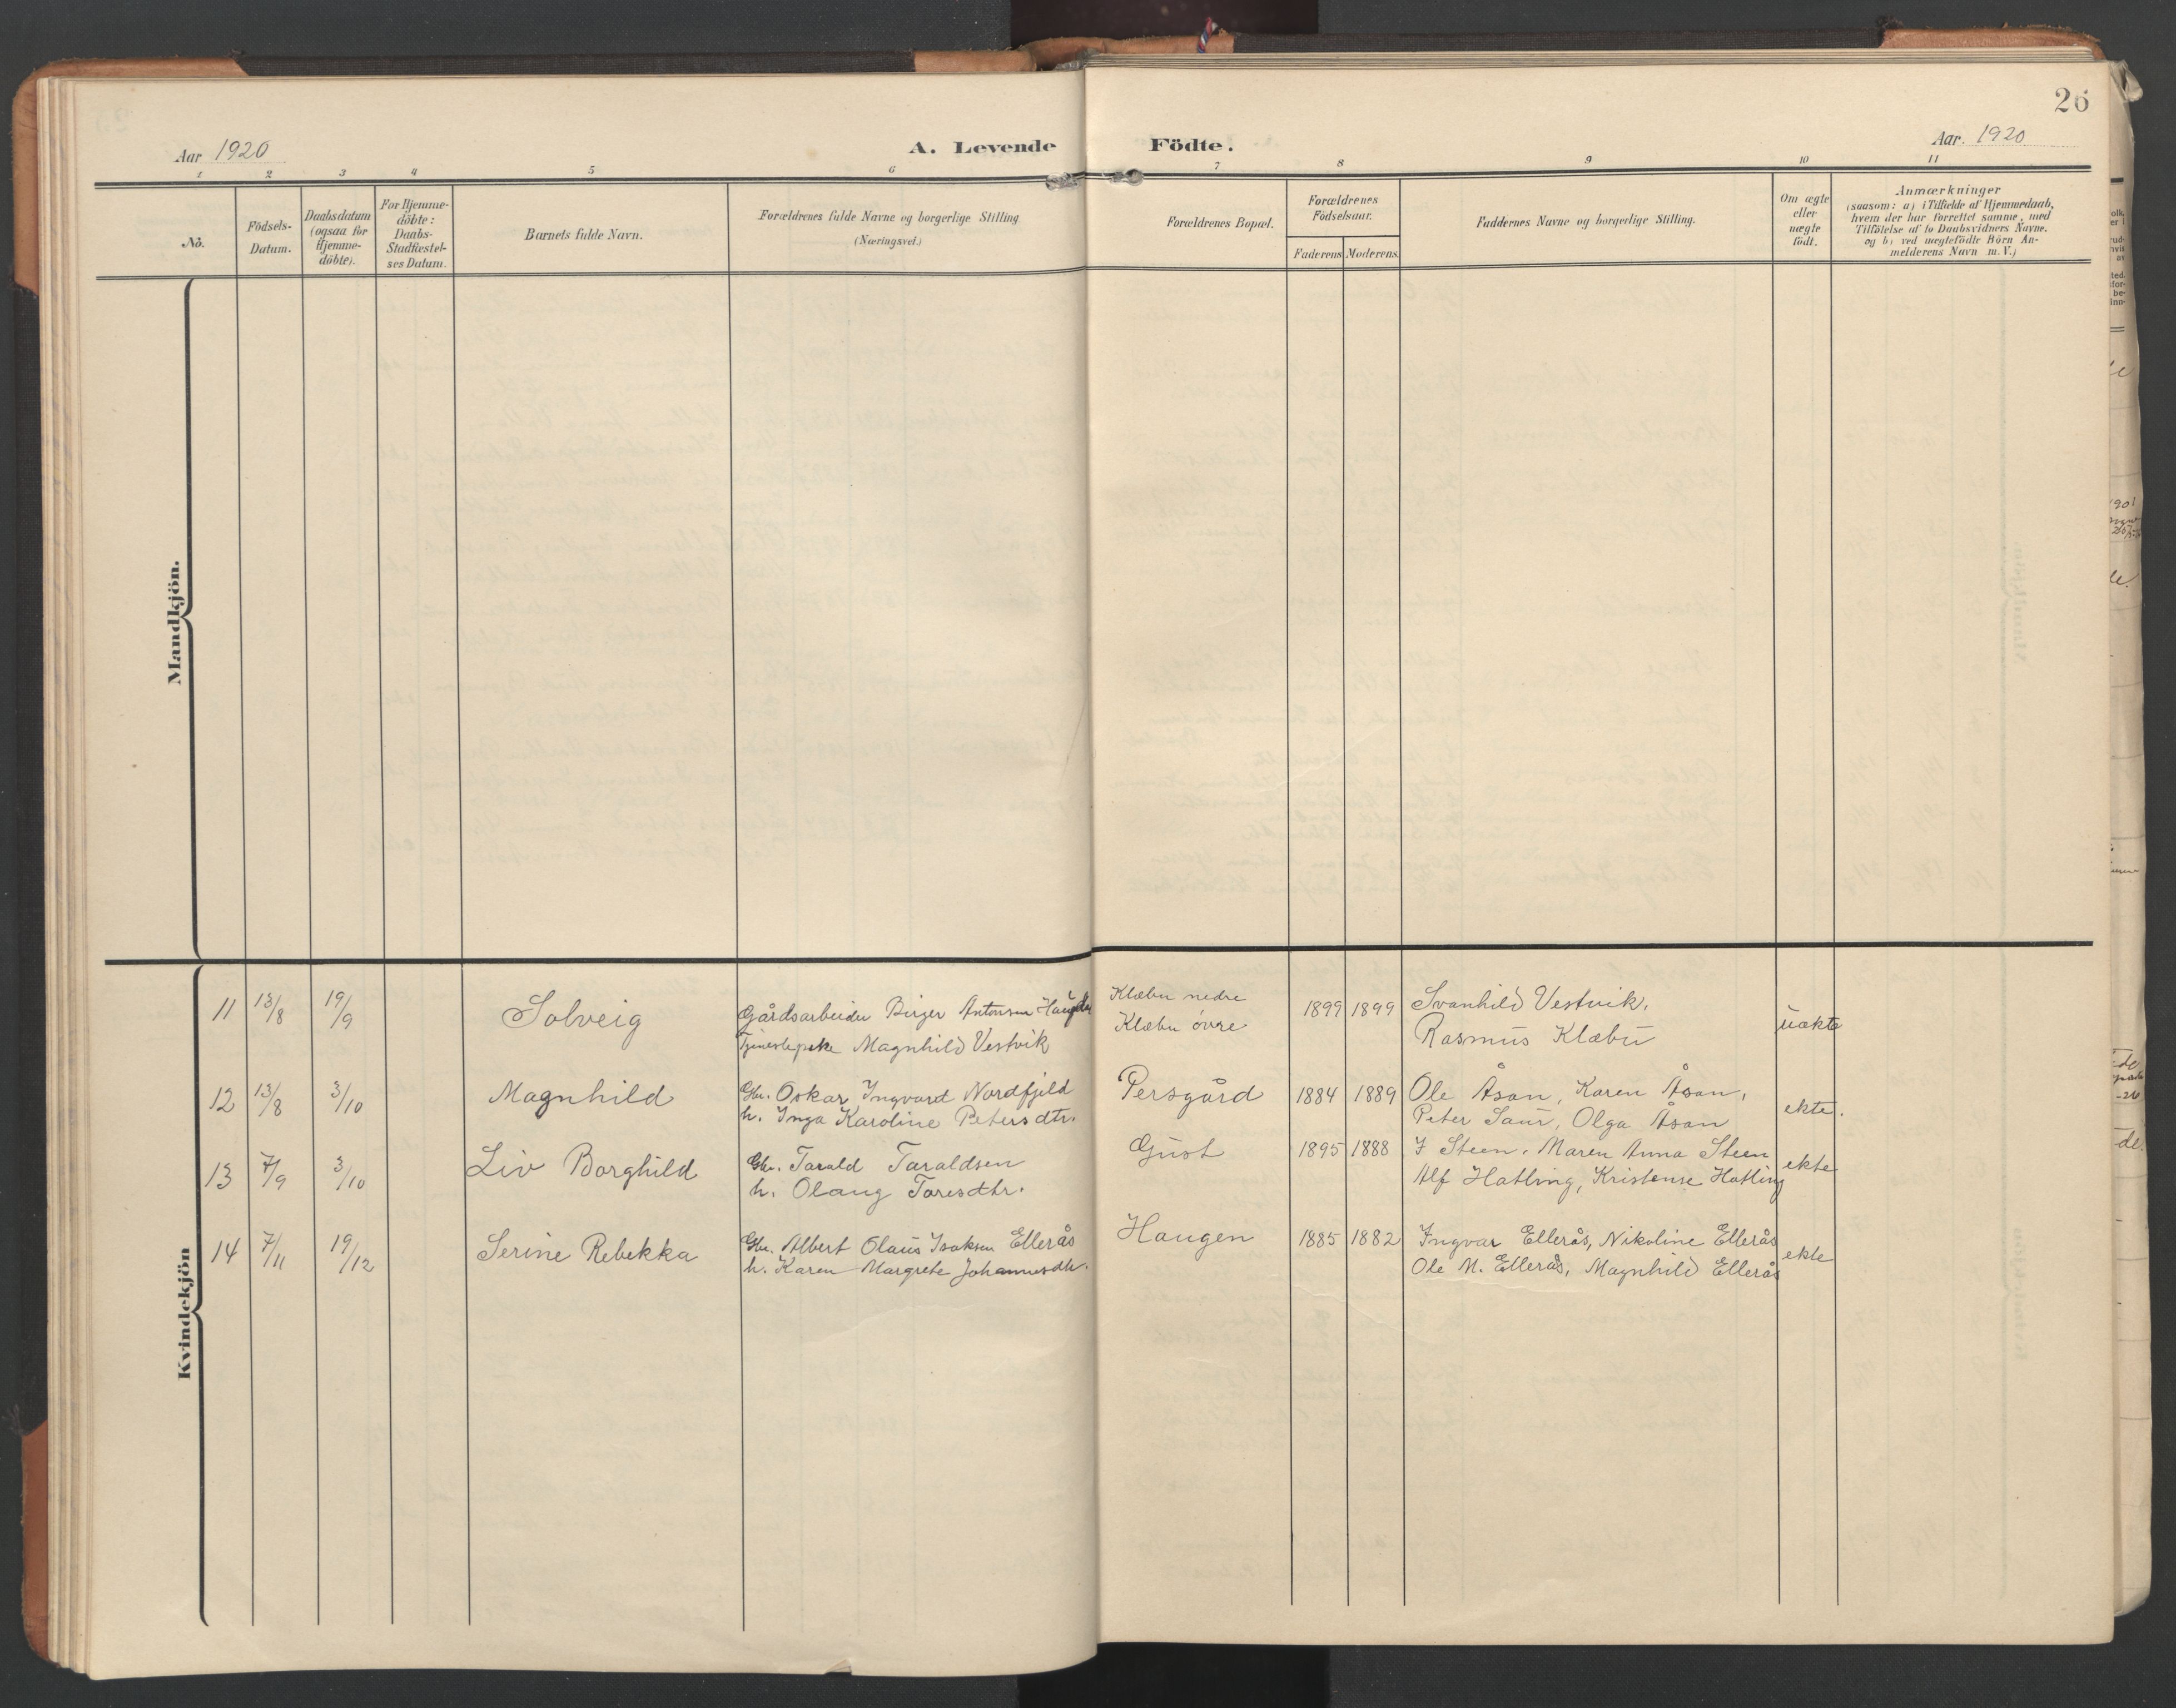 26
Aar 1920
A. Levende Födte.
Aar. 1920
1 2 3 4 5 6 7 8 9 10 11
No.
Födsels-
Datum.
Daabsdatum
(ogsaa for
Hjemme-
döbte).
For Hjemme-
döbte:
Daabs-
Stadfæstel-
ses Datum.
Barnets fulde Navn.
Forældrenes fulde Navne og borgerlige Stilling
(Næringsvei.)
Forældrenes Bopæl.
Forældrenes
Födselsaar.
Faderens Moderens
Faddernes Navne og borgerlige Stilling.
Om ægte
eller
uægte
födt.
Anmærkninger
(saasom: a) i Tilfælde af Hjemmedaab,
hvem der har forrettet samme, med
Tilföielse af to Daabsvidners Navne.
og b) ved uægtefödte Börn An-
melderens Navn m. V.)
Mandkjön.
Kvindekjön
11 13/8 19/9 Solveig Gårdsarbeider Birger Antonsen Klæbu nedre 1899 1899 Svanhild Vestvik, uekte
Tjenestepike Magnhild Vestvik Klæbu övre Rasmus Klæbu
12 13/8 3/10 Magnhild Gbr. Oskar Ingvard Nordfjeld Persgård 1884 1889 Ole Åsan, Karen Åsan, ekte.
h. Inga Karoline Petersdtr. Peter Saur, Olga Åsan
13 7/9 3/10 Liv Borghild Gbr. Tarald Taraldsen Gust 1895 1888 I Steen, Maren Anna Steen ekte
h. Olaug Toresdtr. Alf Hatling, Kristense Hatling
14 7/11 19/12 Serine Rebekka Gbr. Albert Olaus Isaksen Ellerås Haugen 1885 1882 Ingvar Ellerås, Nikoline Ellerås ekte
h. Karen Margrete Johannesdtr. Ole M. Ellerås, Magnhild Ellerås